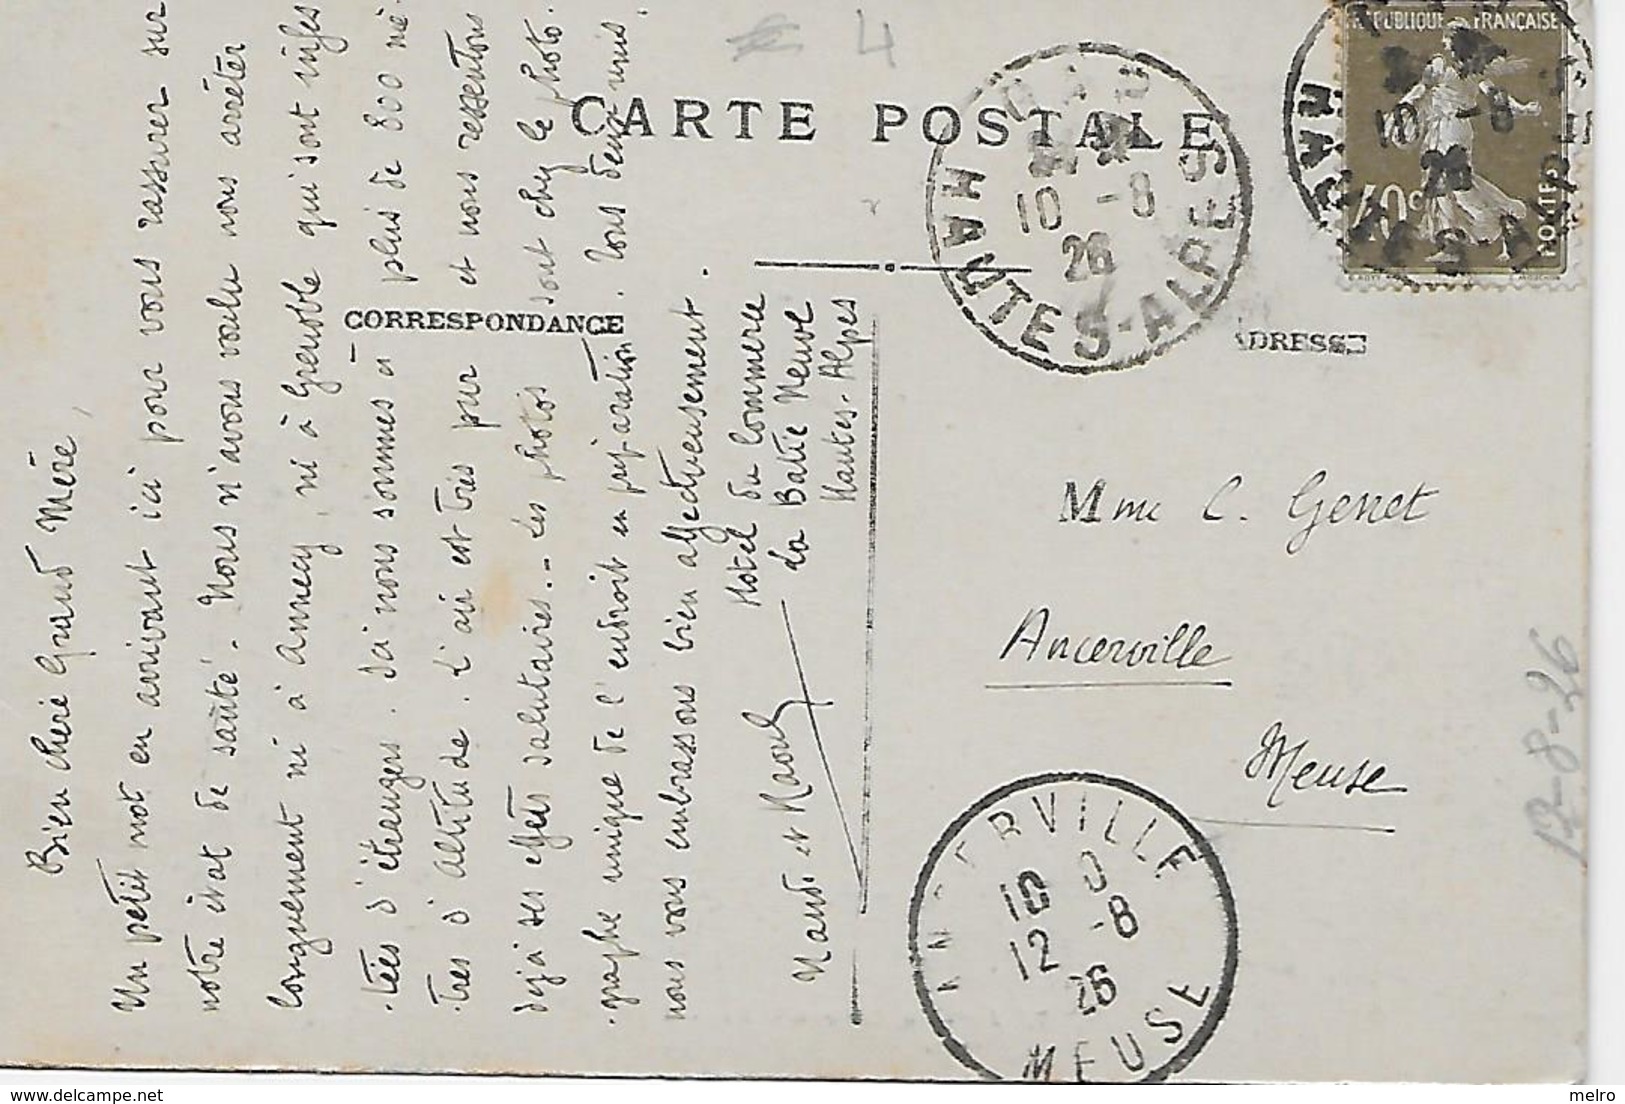 CARTE POSTALE
CORRESPONDANCE
Bien chère Grand Mère,
Un petit mot en arrivant ici pour vous rassurer sur
notre état de santé. Nous n'avons voulu nous arrêter
longuement ni à Annecy, ni à Grenoble qui sont infes
-tées d'étrangers. Ici nous sommes à plus de 800 mè-
-tres d'altitude. L'air est très pur et nous ressentons
déjà ses effets salutaires. - Les photos sont chez le photo-
-graphe unique de l'endroit en préparation. Tous deux unis
nous vous embrassons bien affectueusement.
Maud et Raoul
Hotel du Commerce
La Batie Neuve
Hautes-Alpes
4
HAUTES-ALPES
10 -8
26
REPUBLIQUE FRANÇAISE
40c
POSTES
10 -8
26
ADRESSE
Mme C. Genet
Ancerville
Meuse
ANCERVILLE
10
12 -8
26
MEUSE
12-8-26
melro